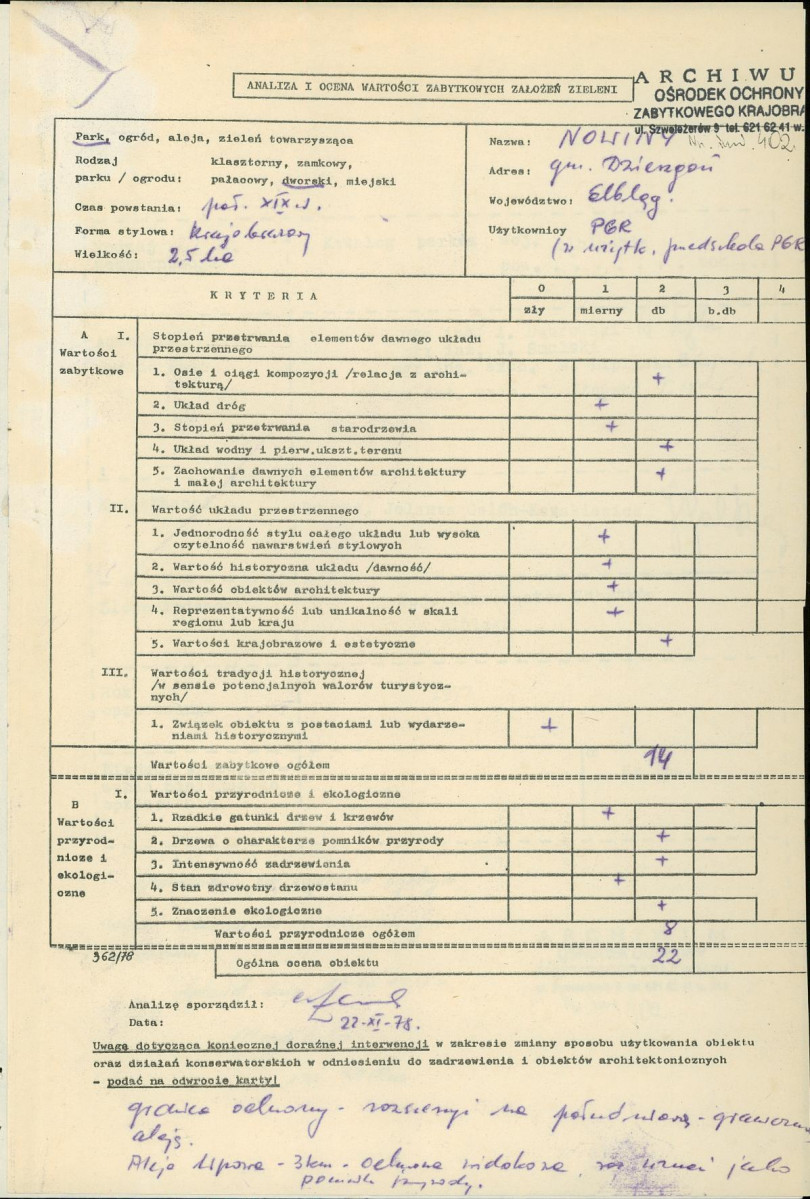 ANALIZA I OCENA WARTOŚCI ZABYTKOWYCH ZAŁOŻEŃ ZIELENI
ARCHIWU
OŚRODEK OCHRONY
ZABYTKOWEGO KRAJOBRA
ul. Szwoleżerów 9 tel. 621 62 41 w.
Park, ogród, aleja, zieleń towarzysząca
Rodzaj parku / ogrodu: klasztorny, zamkowy,
pałacowy, dworski, miejski
Czas powstania: poł. XIX w.
Forma stylowa: krajobrazowy
Wielkość: 2,5 ha
Nazwa: NOWINY
402
Adres: gm. Dzierzgoń
Województwo: Elbląg.
Użytkownicy PGR
(w użytk. przedszkola PGR
KRYTERIA
0 1 2 3 4
zły mierny db b.db
A I. Stopień przetrwania elementów dawnego układu
przestrzennego
Wartości
zabytkowe
1. Osie i ciągi kompozycji /relacja z archi-
tekturą/ +
2. Układ dróg +
3. Stopień przetrwania starodrzewia +
4. Układ wodny i pierw.ukszt.terenu +
5. Zachowanie dawnych elementów architektury
i małej architektury +
II. Wartość układu przestrzennego
1. Jednorodność stylu całego układu lub wysoka
czytelność nawarstwień stylowych +
2. Wartość historyczna układu /dawność/ +
3. Wartość obiektów architektury +
4. Reprezentatywność lub unikalność w skali
regionu lub kraju +
5. Wartości krajobrazowe i estetyczne +
III. Wartości tradycji historycznej
/w sensie potencjalnych walorów turystycz-
nych/
1. Związek obiektu z postaciami lub wydarze-
niami historycznymi +
Wartości zabytkowe ogółem 14
B I. Wartości przyrodnicze i ekologiczne
Wartości
przyrod-
nicze i
ekologi-
czne
1. Rzadkie gatunki drzew i krzewów +
2. Drzewa o charakterze pomników przyrody +
3. Intensywność zadrzewienia +
4. Stan zdrowotny drzewostanu +
5. Znaczenie ekologiczne +
Wartości przyrodnicze ogółem 8
362/78
Ogólna ocena obiektu 22
Analizę sporządził:
Data: 22-XI-78.
Uwagę dotycząca koniecznej doraźnej interwencji w zakresie zmiany sposobu użytkowania obiektu
oraz działań konserwatorskich w odniesieniu do zadrzewienia i obiektów architektonicznych
- podać na odwrocie karty!
granica ochrony - rozszerzyć na południową -
aleję.
Aleja lipowa - 3km - ochrona widokowa, uznać jako
pomnik przyrody.